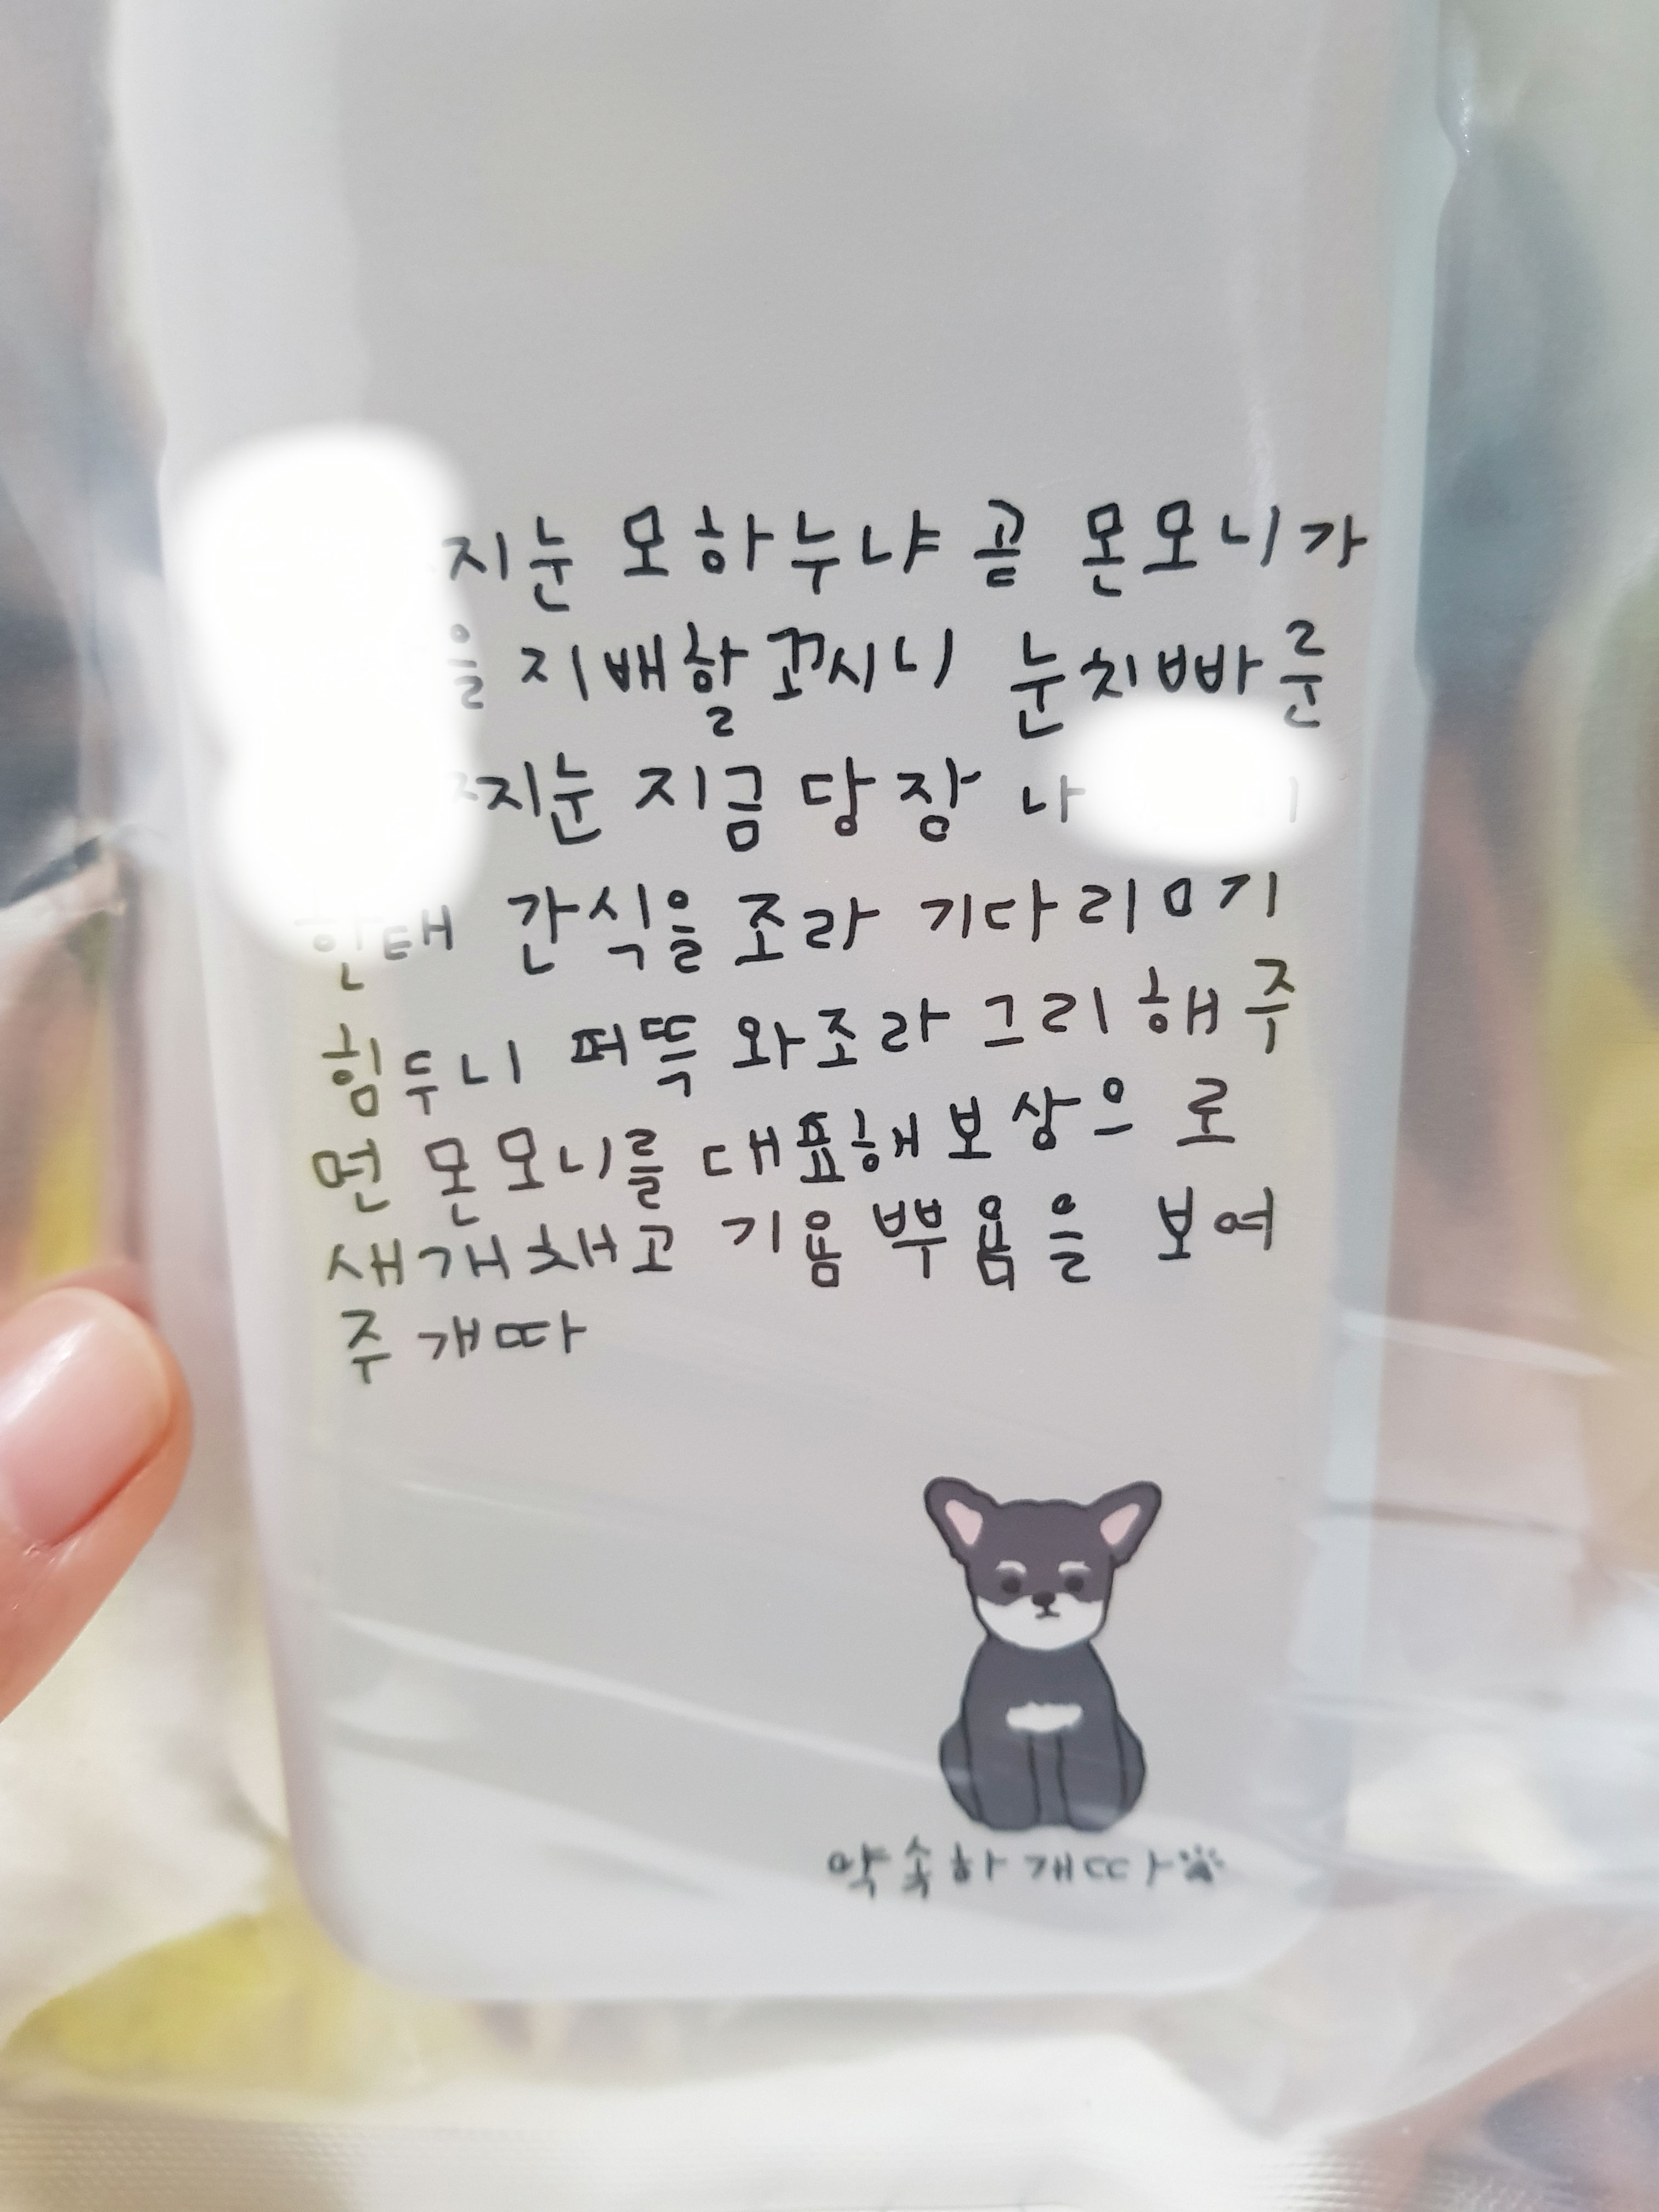 지눈 모하누냐 곧 몬모니가
을 지배할꼬시니 눈치빠룬
지눈 지금 당장 나
한태 간식을 조라 기다리미기
힘두니 퍼뜩 와조라 그리해주
면 몬모니를 대표해보상으로
새개채고 기욤뿌욤을 보여
주개따
약속하개따